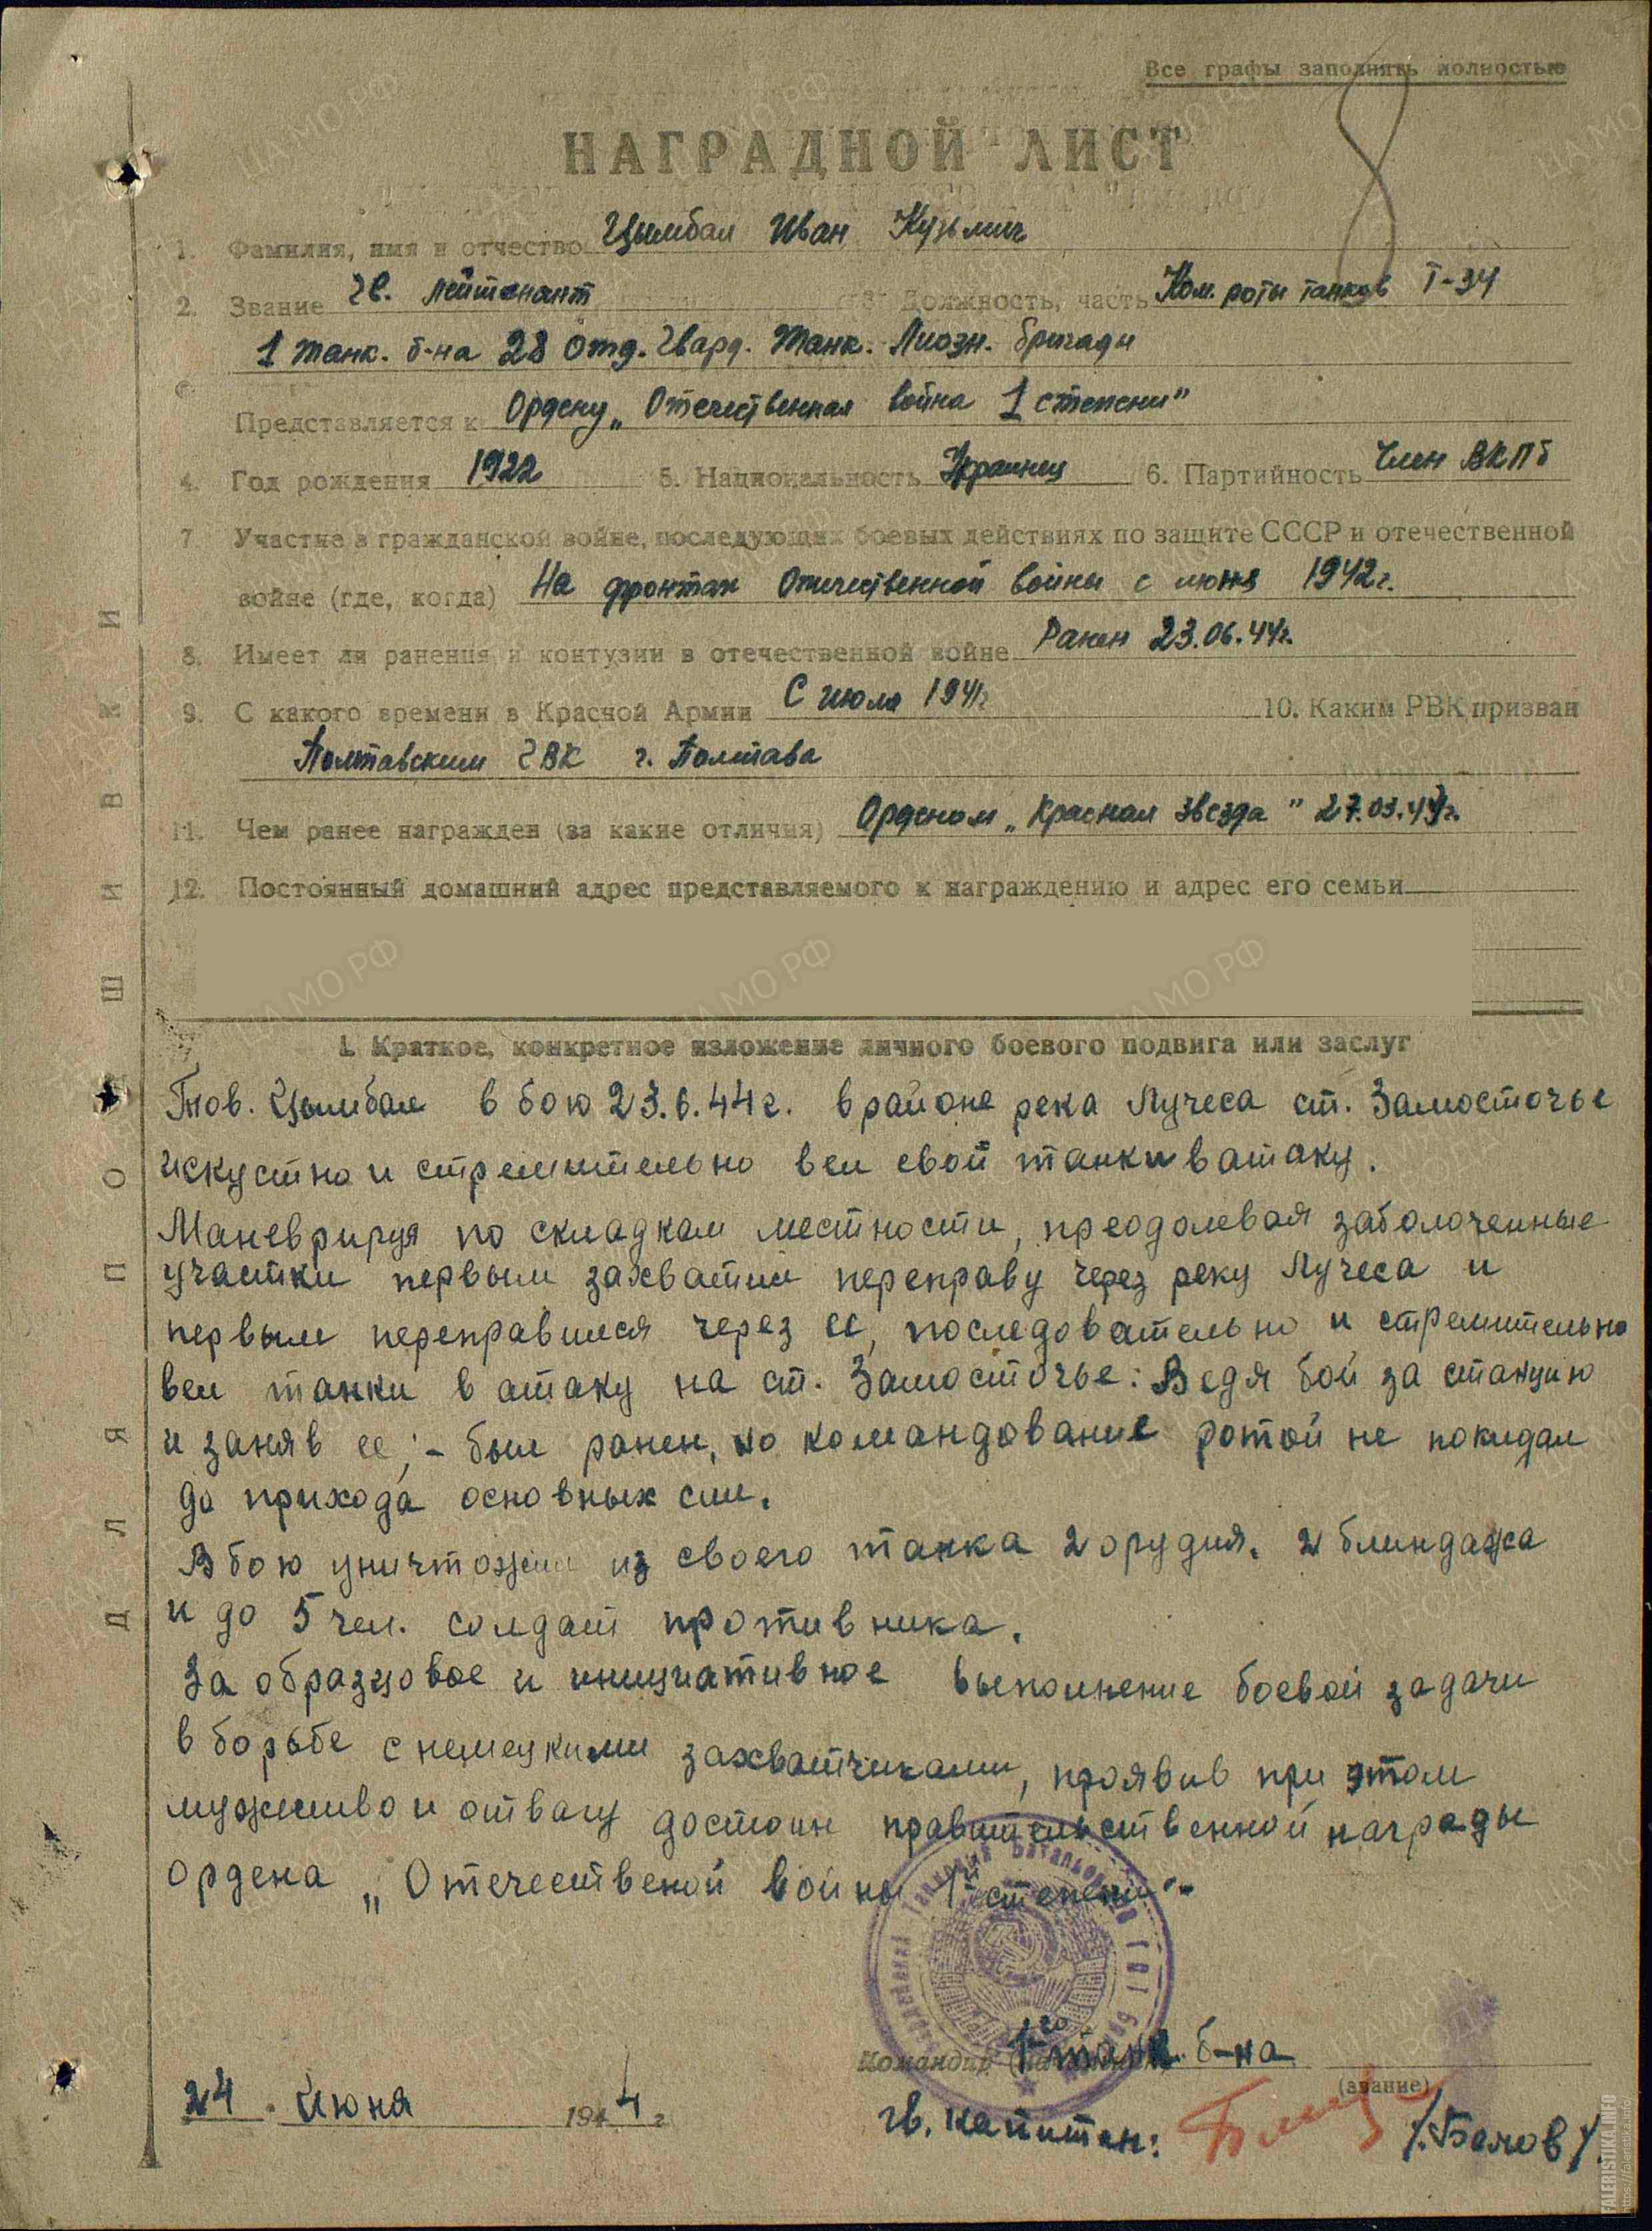 Все графы заполнять полностью
НАГРАДНОЙ ЛИСТ
1. Фамилия, имя и отчество Цымбал Иван Кузьмич
2. Звание Гв. лейтенант 3. Должность, часть Ком. роты танков Т-34
1 танк. б-на 28 отд. Гвард. Танк. Лиозн. бригады
Представляется к Ордену „Отечественная война 1 степени"
4. Год рождения 1922 5. Национальность Украинец 6. Партийность Член ВКПб
7 Участие в гражданской войне, последующих боевых действиях по защите СССР и отечественной
войне (где, когда) На фронтах Отечественной войны с июня 1942г.
8. Имеет ли ранения и контузии в отечественной войне Ранен 23.06.44г.
9. С какого времени в Красной Армии С июля 1941г 10. Каким РВК призван
Полтавским ГВК г. Полтава
11. Чем ранее награжден (за какие отличия) Орденом „Красная Звезда" 27.03.44г.
12. Постоянный домашний адрес представляемого к награждению и адрес его семьи
1. Краткое, конкретное изложение личного боевого подвига или заслуг
Тов. Цымбал в бою 23.6.44г. в районе река Лучеса ст. Замосточье
искустно и стремительно вел свои танки в атаку.
Маневрируя по складкам местности, преодолевая заболоченные
участки первым захватил переправу через реку Лучеса и
первым переправился через ее, последовательно и стремительно
вел танки в атаку на ст. Замосточье: Ведя бой за станцию
и заняв ее, - был ранен, но командование ротой не покидал
до прихода основных сил.
В бою уничтожил из своего танка 2 орудия. 2 блиндажа
и до 5 чел. солдат противника.
За образцовое и инициативное выполнение боевой задачи
в борьбе с немецкими захватчиками, проявив при этом
мужество и отвагу достоин правительственной награды
ордена „Отечественой войны 1й степени".
Командир 1го танк. б-на
(звание)
24 Июня 1944 г.
гв. капитан: /.Белов/.
ДЛЯ ПОДШИВКИ
ЦАМО РФ
FALERISTIKA.INFO
https://faleristika.info/